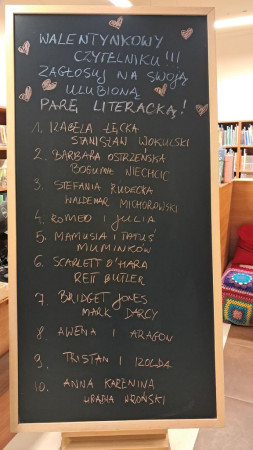 WALENTYNKOWY
CZYTELNIKU!!!
ZAGŁOSUJ NA SWOJĄ
ULUBIONĄ
PARĘ LITERACKĄ!
1. IZABELA ŁĘCKA
STANISŁAW WOKULSKI
2. BARBARA OSTRZEŃSKA
BOGUMIŁ NIECHCIC
3. STEFANIA RUDECKA
WALDEMAR MICHOROWSKI
4. ROMEO I JULIA
5. MAMUSIA I TATUŚ
MUMINKÓW
6. SCARLETT O'HARA
RETT BUTLER
7. BRIDGET JONES
MARK DARCY
8. AWENA I ARAGON
9. TRISTAN I IZOLDA
10. ANNA KARENINA
HRABIA WROŃSKI